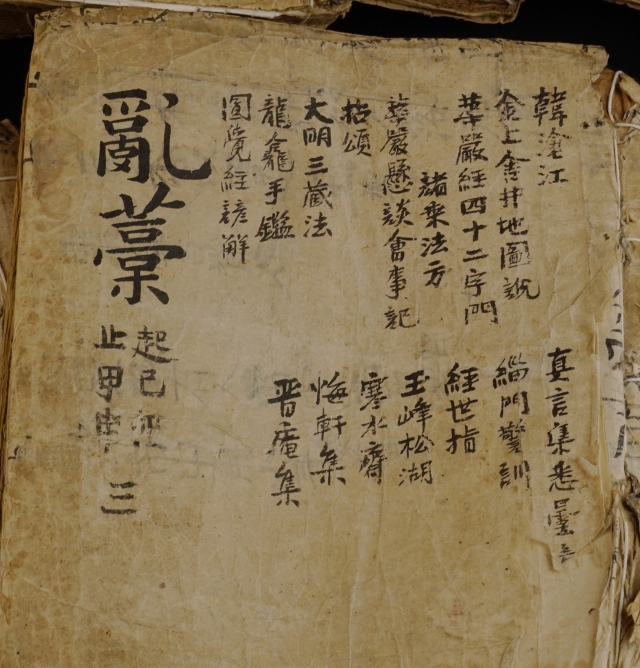 韓滄江
金上舍井地圖說
華嚴經四十二字門
諸乘法方
華嚴懸談會事記
拈頌
大明三藏法
龍龕手鑑
圓覺經諺解
真言集悉曇
緇門警訓
經世指
玉峰松湖
寒水齋
悔軒集
晋庵集
亂藁
起己
止甲申
三